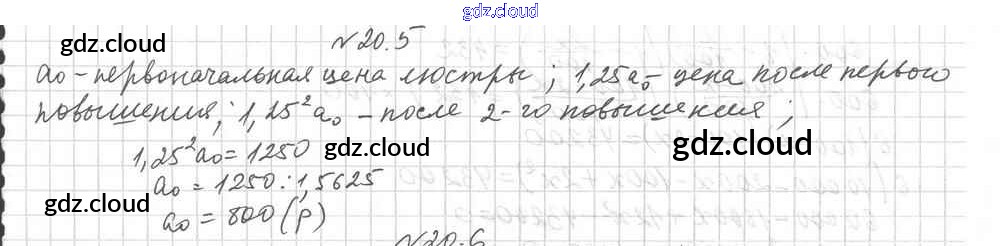 gdz.cloud
gdz.cloud
№20.5
a₀ - первоначальная цена люстры; 1,25a₀ - цена после первого
повышения; 1,25²a₀ - после 2-го повышения;
1,25²a₀ = 1250
gdz.cloud
gdz.cloud
a₀ = 1250:1,5625
gdz.cloud
a₀ = 800 (р)
№20.6